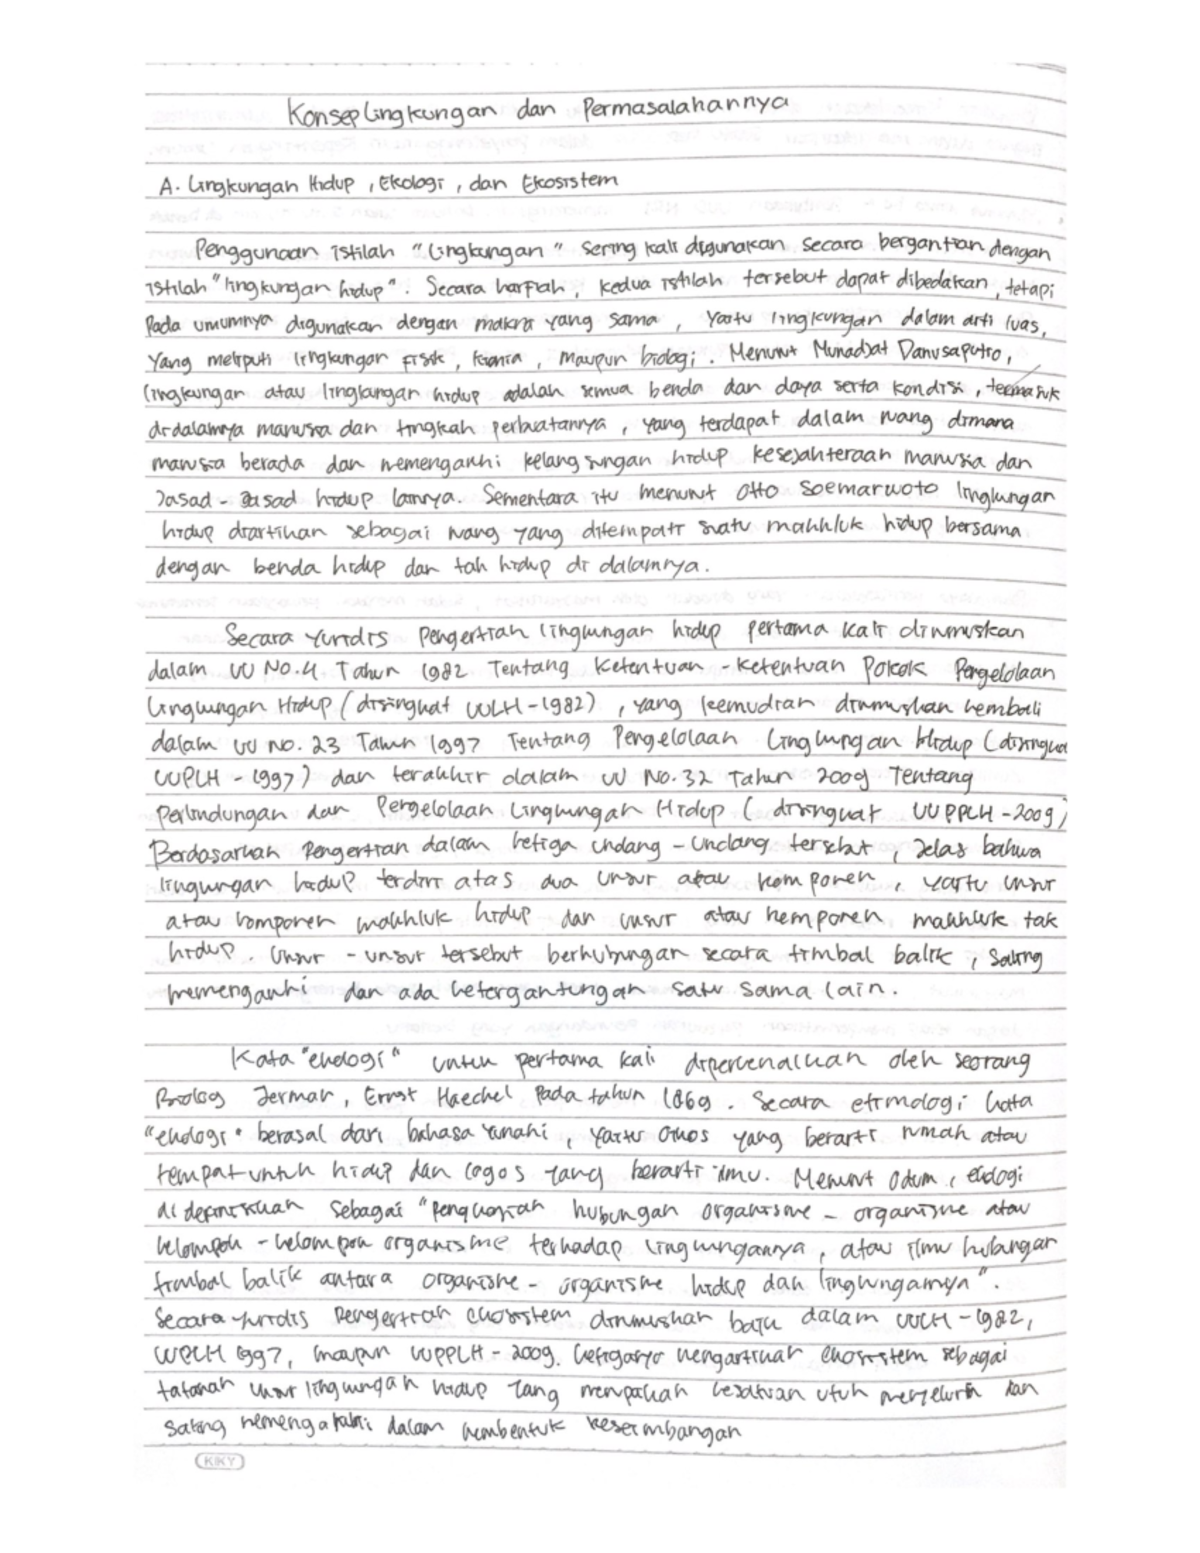 Konsep Lingkungan dan Permasalahannya
A. Lingkungan Hidup, Ekologi, dan Ekosistem
Penggunaan istilah "Lingkungan" sering kali digunakan secara bergantian dengan
istilah "lingkungan hidup". Secara harfiah, kedua istilah tersebut dapat dibedakan, tetapi
Pada umumnya digunakan dengan makna yang sama, yaitu lingkungan dalam arti luas,
yang meliputi lingkungan fisik, kimia, maupun biologi. Menurut Munadjat Danusaputro,
lingkungan atau lingkungan hidup adalah semua benda dan daya serta kondisi, termasuk
didalamnya manusia dan tingkah perbuatannya, yang terdapat dalam ruang dimana
manusia berada dan memengaruhi kelangsungan hidup kesejahteraan manusia dan
Jasad - Jasad hidup lainya. Sementara itu menurut Otto Soemarwoto lingkungan
hidup diartikan sebagai ruang yang ditempati suatu makhluk hidup bersama
dengan benda hidup dan tak hidup di dalamnya.
Secara Yuridis Pengertian lingkungan hidup pertama kali dirumuskan
dalam UU No.4 Tahun 1982 Tentang Ketentuan - Ketentuan Pokok Pengelolaan
Lingkungan Hidup (disingkat UULH-1982), yang kemudian dirumuskan kembali
dalam UU No. 23 Tahun 1997 Tentang Pengelolaan Lingkungan Hidup (disingka
UUPLH - 1997) dan terakhir dalam UU No.32 Tahun 2009 Tentang
Perlindungan dan Pengelolaan Lingkungan Hidup (disingkat UUPPLH-2009)
Berdasarkan Pengertian dalam ketiga undang - undang tersebut, Jelas bahwa
lingkungan hidup terdiri atas dua unsur atau komponen, yaitu unsur
atau komponen makhluk hidup dan unsur atau komponen makhluk tak
hidup. Unsur - unsur tersebut berhubungan secara timbal balik, saling
memengaruhi dan ada ketergantungan satu sama lain.
Kata "ekologi" untuk pertama kali diperkenalkan oleh seorang
Biolog Jerman, Ernst Haeckel Pada tahun 1869. Secara etimologi kata
"ekologi" berasal dari bahasa Yunani, yaitu Oikos yang berarti rumah atau
tempat untuk hidup dan logos yang berarti ilmu. Menurut Odum, ekologi
di definisikan sebagai "pengkajian hubungan organisme - organisme atau
kelompok - kelompok organisme terhadap lingkungannya, atau ilmu hubungan
timbal balik antara organisme - organisme hidup dan lingkungannya".
Secara yuridis Pengertian ekosistem dirumuskan baik dalam UULH-1982,
UUPLH 1997, maupun UUPPLH - 2009. ketiganya mengartikan ekosistem sebagai
tatanan unsur lingkungan hidup yang merupakan kesatuan utuh menyeluruh dan
saling dalam membentuk keseimbangan
KIKY